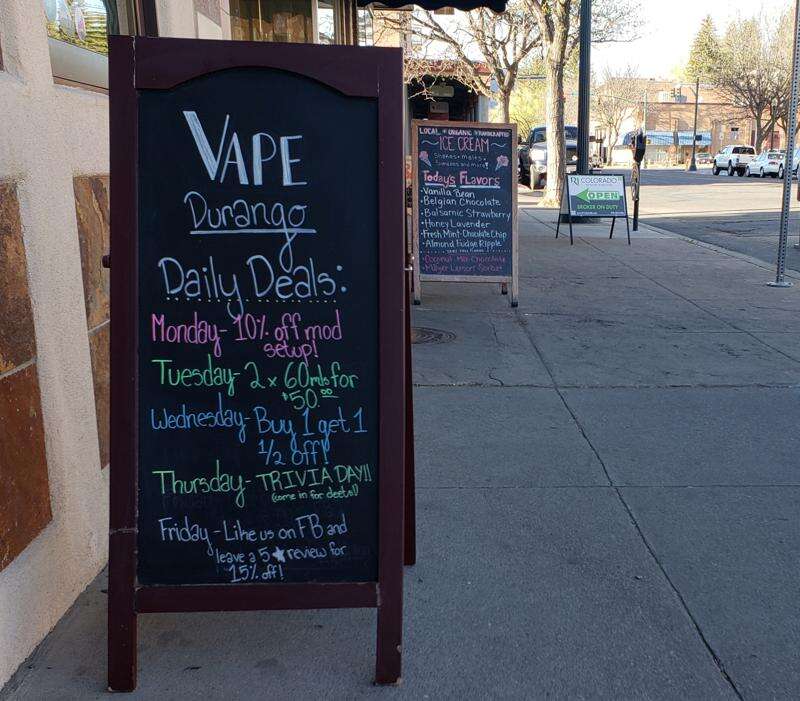 VAPE
Durango
Daily Deals:
Monday- 10% off mod
setup!
Tuesday- 2 x 60mls for
$50.00
Wednesday- Buy 1 get 1
1/2 off!
Thursday- TRIVIA DAY!!
(come in for deets!)
Friday - Like us on FB and
leave a 5★ review for
15% off!
LOCAL • ORGANIC • HANDCRAFTED
ICE CREAM
Shakes • Malts •
Sundaes and more
Today's Flavors
• Vanilla Bean
• Belgian Chocolate
• Balsamic Strawberry
• Honey Lavender
• Fresh Mint-Chocolate Chip
• Almond Fudge Ripple
• Coconut Milk Chocolate
• Meyer Lemon Sorbet
COLORADO
OPEN
BROKER ON DUTY